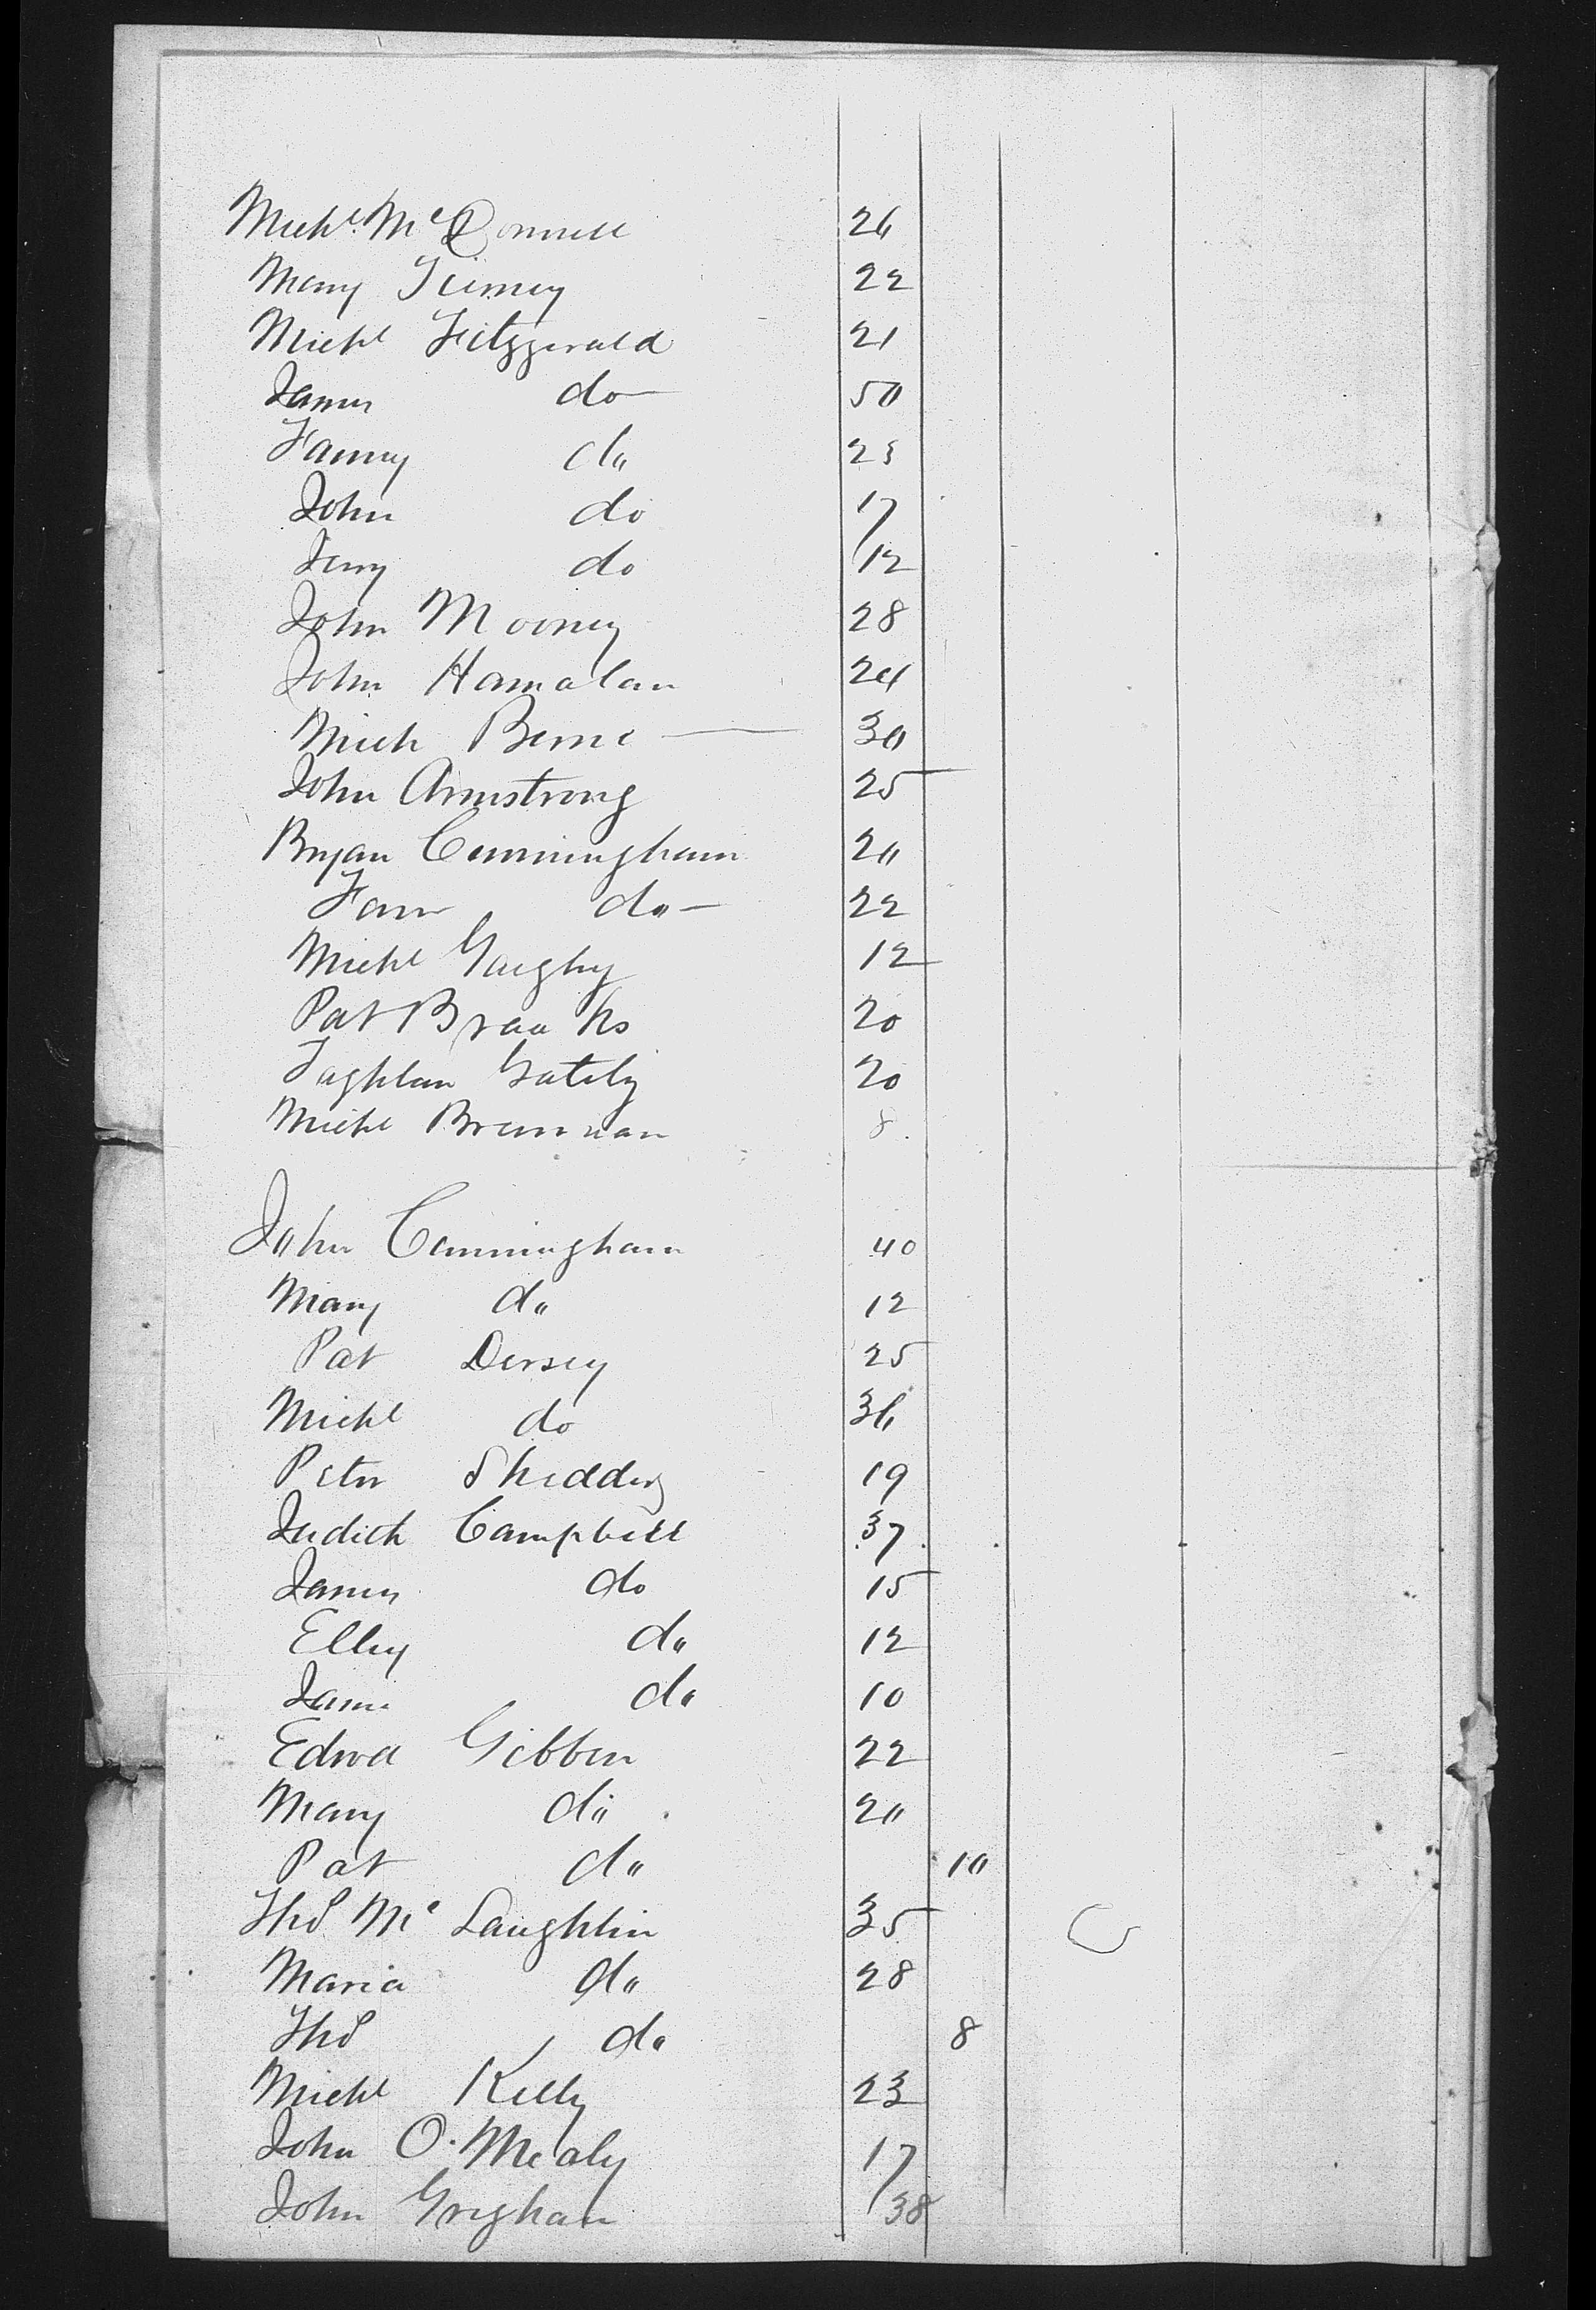 Michl. McDonnell 26
Mary Tierney 22
Michl Fitzgerald 21
James do 50
Fanny do 23
John do 17
Jerry do 12
John Mooney 28
John Hamalan 24
Mich Berne 30
John Armstrong 25
Bryan Cunningham 20
do 22
Michl 12
Pat 20
Gately 20
Michl Brennan 8
John Cunningham 40
Mary do 12
Pat Dersey 25
Michl do 36
Peter 19
Judith Campbell 37
James do 15
Elley do 12
Jams do 10
Edwd Gibben 22
Mary do 20
Pat do 10
Thos McLaughlin 35
Maria do 28
Thos do 8
Michl Kelly 23
John O. Mealy 17
John Grighan 38